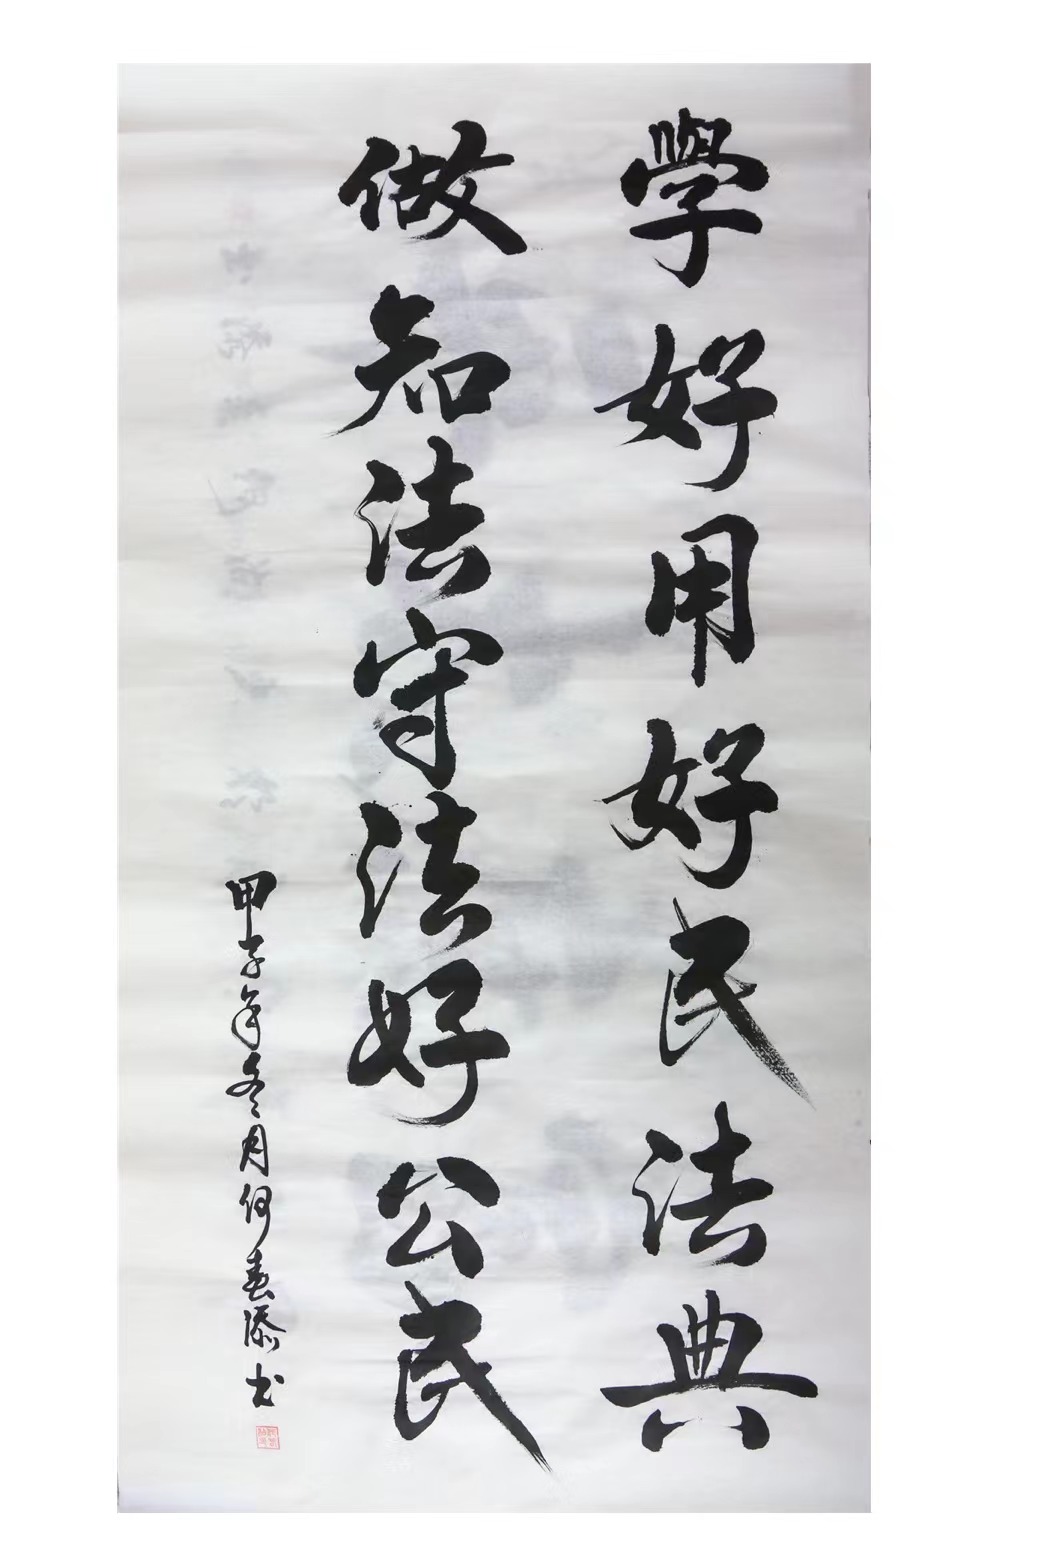 學好用好民法典
做知法守法好公民
甲子年冬月何春添书